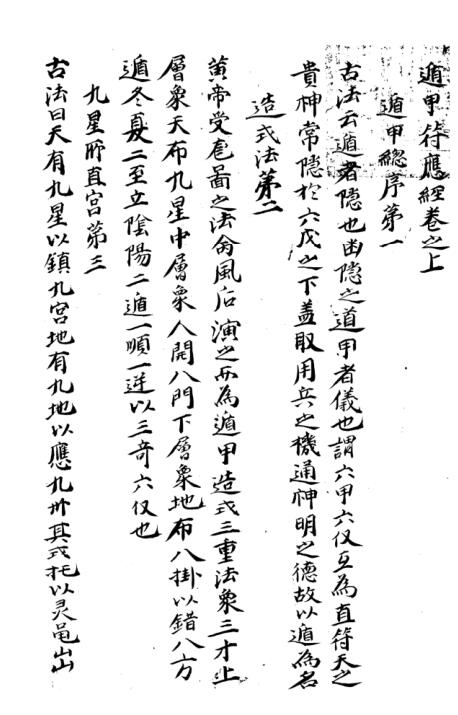 遁甲符應經卷之上
遁甲總序第一
古法云遁者隐也幽隐之道甲者儀也謂六甲六仪互為直符天之
貴神常隐於六戊之下盖取用兵之機通神明之德故以遁為名
造式法第二
黄帝受啚之法命風后演之而為遁甲造式三重法象三才上
層象天布九星中層象人開八門下層象地布八掛以錯八方
遁冬夏二至立陰陽二遁一順一逆以三奇六仪也
九星所直宮第三
古法曰天有九星以鎮九宮地有九地以應九州其式托以灵黾